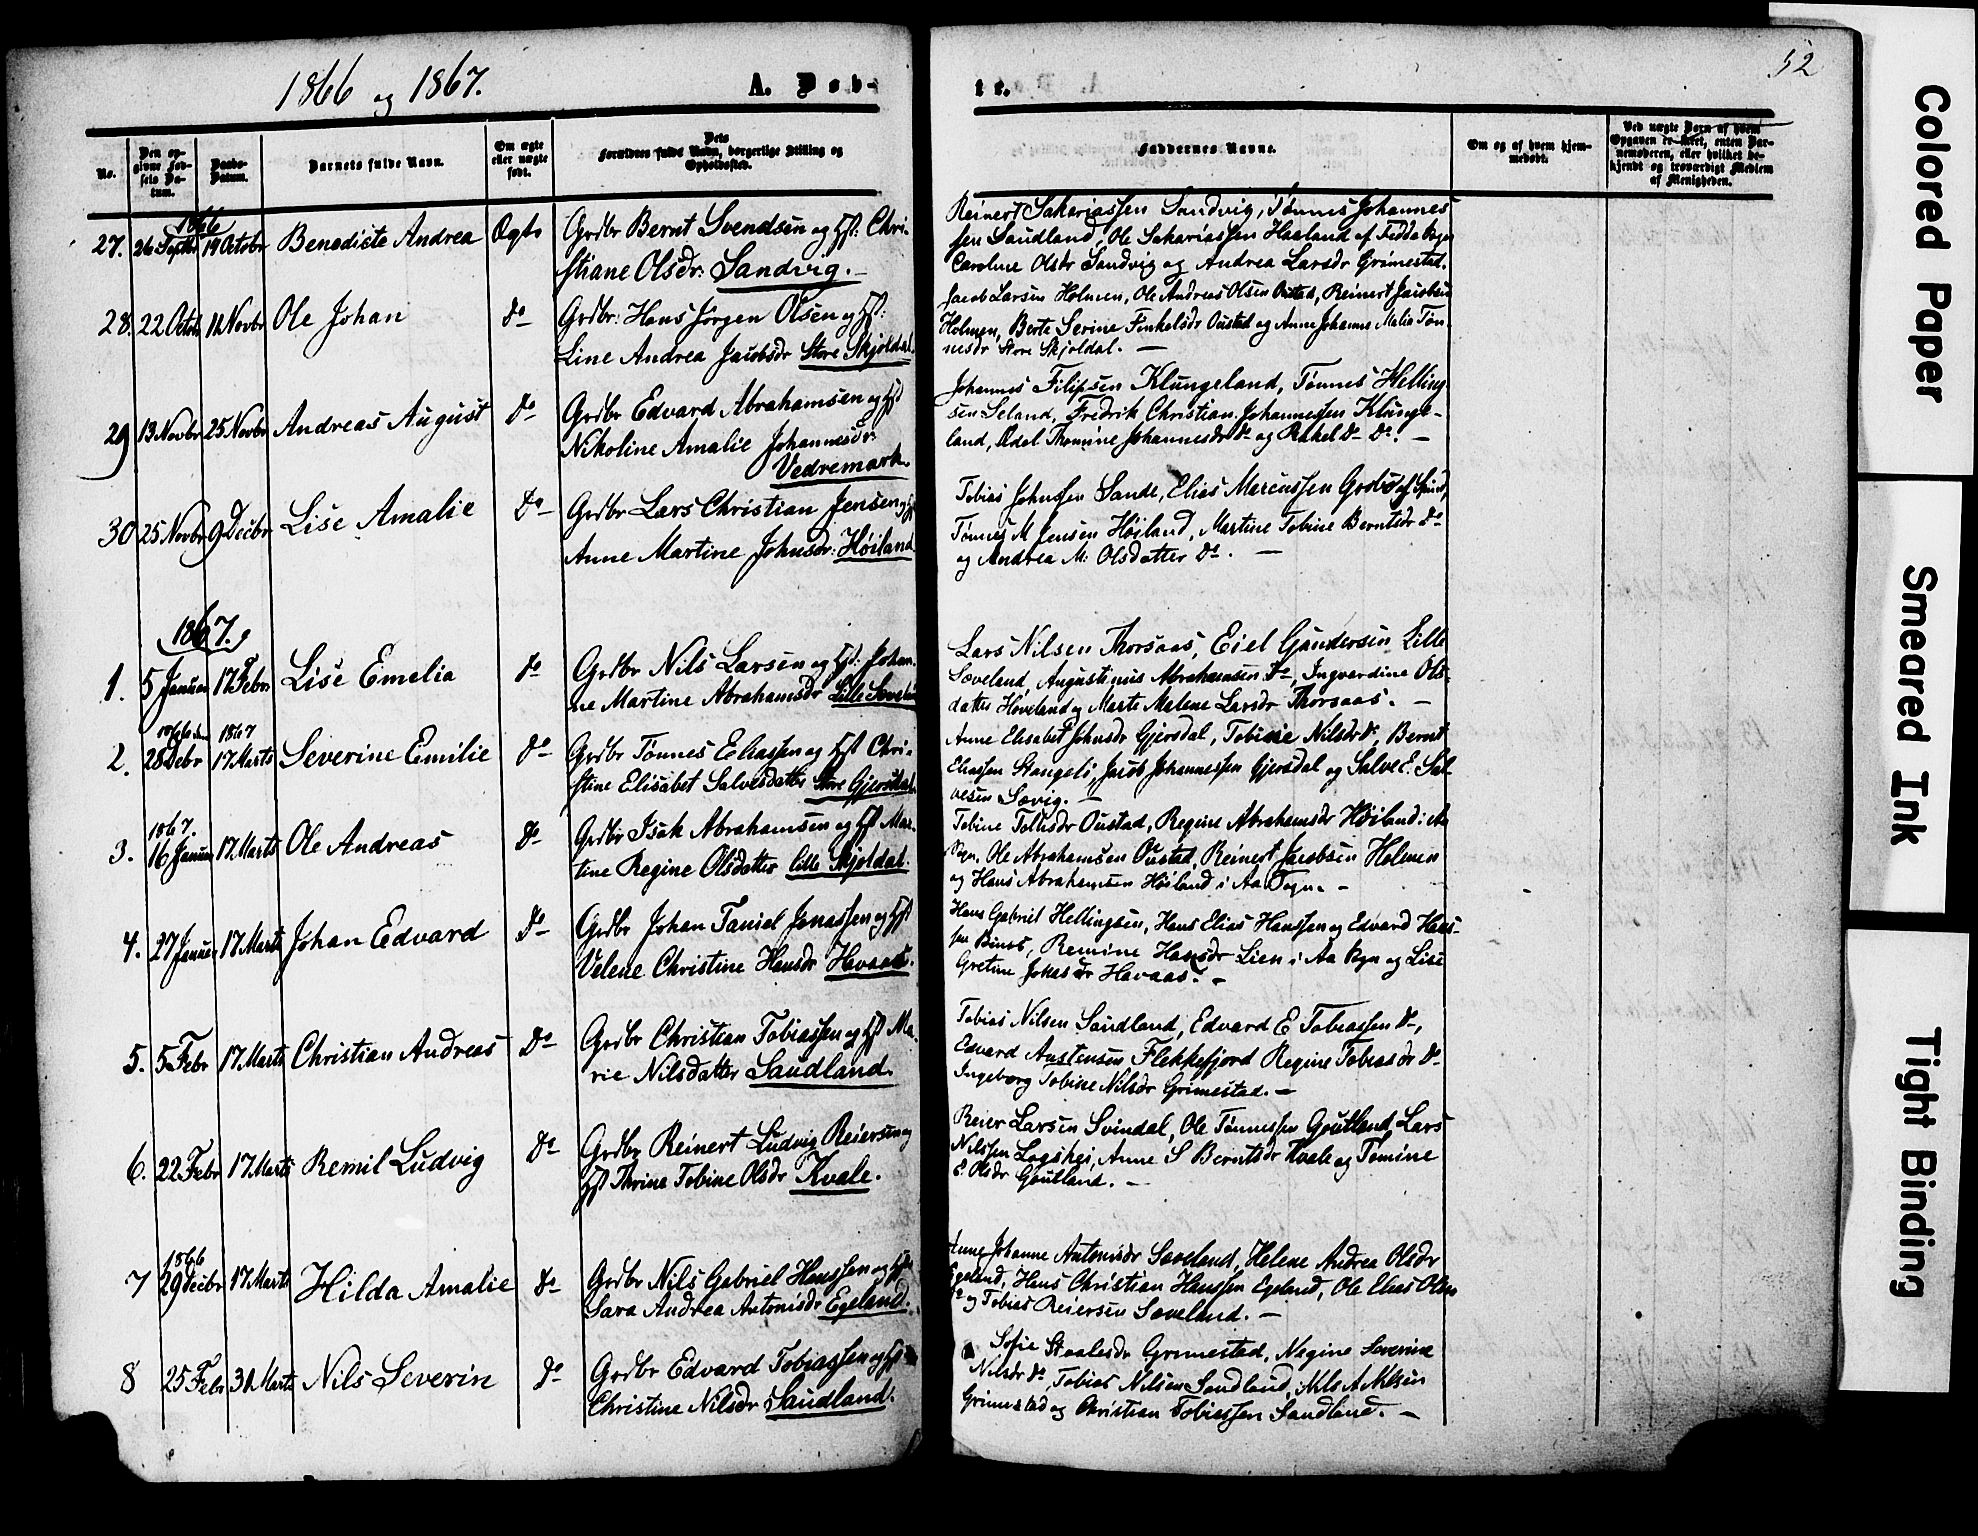 1866 og 1867.
A. Døb-
te.
52
No.
Den op-
givne Fød-
sels Da-
tum.
Daabs-
Datum.
Barnets fulde Navn.
Om ægte
eller uægte
født.
Dets
Forældres fulde Navn, borgerlige Stilling og
Opholdssted.
Faddernes Navne.
Om og af hvem hjem-
medøbt.
Ved uægte Børn af hvem
Opgaven er skeet, enten Bar-
nemoderen, eller hvilket be-
kjendt og troværdigt Medlem
af Menigheden.
1866
27. 26 Septbr 14 Octobr Benedicte Andrea Ægte Grdbr Bernt Svendsen og Hst: Chri-
stiane Olsdr: Sandvig.
Reinert Sakariassen Sandvig, Tønnes Johannes
sen Sandland, Ole Sakariassen Haaland af Fedde Sogn
Caroline Olsdr Sandvig og Andrea Larsdr Grimestad.
28. 22 Octob 11 Novbr Ole Johan do Grdbr: Hans Jørgen Olsen og Hst:
Line Andrea Jacobsdr Store Skjoldal.
Jacob Larsen Holmen, Ole Andreas Olsen Oustad, Reinert Jacobsen
Holmen, Berte Serine Finkelsdr Oustad og Anne Johanne Malia Tøn-
nesdr Store Skjoldal.
29 13 Novbr 25 Novbr Andreas August do Grdbr Edvard Abrahamsen og Hst
Nikoline Amalie Johannesdr:
Vedremark.
Johannes Filipsen Klungeland, Tønnes Helling-
sen Seland, Fredrik Christian Johannessen Klunge-
land, Adel Thomine Johannesdr do og Rakel do do.
30 25 Novbr 9 Decbr Lise Amalie do Grdbr Lars Christian Jensen og Hst
Anne Martine Johnsdr: Høiland
Tobias Johnsen Sande, Elias Marcussen Grosbø af Spind,
Tønnes M Jensen Høiland, Martine Tobine Berntsdr do
og Andrea M: Olsdatter do.
1867.
1. 5 Januar 17 Febr Lise Emelia do Grdbr Nils Larsen og Hst: Johan-
ne Martine Abrahamsdr Lille Sæveland
Lars Nilsen Thorsaas, Eiel Gundersen Lille
Sæveland, Augustinus Abrahamsen do, Ingvardine Ols-
datter Høveland og Marte Malene Larsdr Thorsaas.
1866 1867
2. 28 Debr 17 Marts Severine Emilie do Grdbr Tønnes Eliassen og Hst Chri-
stine Elisabet Salvesdatter Store Gjersdal.
Anne Elisabet Johnsdr Gjersdal, Tobine Nilsdr do, Bernt
Eliassen Stangeli, Jacob Johannessen Gjersdal og Salve E. Sal-
vesen Sævig.
1867.
3. 16 Januar 17 Marts Ole Andreas do Grdbr Isak Abrahamsen og Hst Mar-
tine Regine Olsdatter lille Skjoldal.
Tobine Tollisdr Oustad, Regine Abrahamsdr Høiland i Aa
Sogn, Ole Abrahamsen Oustad, Reinert Jacobsen Holmen
og Hans Abrahamsen Høiland i Aa Sogn.
4. 27 Januar 17 Marts Johan Edvard do Grdbr Johan Taniel Jonassen og Hst
Velene Christine Hansdr Havaas.
Hans Gabriel Hellingsen, Hans Elias Hanssen og Edvard Hans-
sen, Remine Hansdr Lien i Aa Sogn og Lise
Gretine Jonasdr Havaas.
5. 5 Febr 17 Marts Christian Andreas do Grdbr Christian Tobiassen og Hst Ma-
rie Nilsdatter Sandland.
Tobias Nilsen Sandland, Edvard E Tobiassen do,
Edvard Austensen Flekkefjord Regine Tobiasdr do
Ingeborg Tobine Nilsdr Grimestad.
6. 22 Febr 17 Marts Remil Ludvig do Grdbr Reinert Ludvig Reiersen og
Hst Thrine Tobine Olsdr Kvale.
Reier Larsen Svindal, Ole Tønnessen Goutland, Lars
Nilssen Løgshei, Anne S Berntsdr Kvale og Tomine
E Olsdr Goutland.
1866
7 29 Decbr 17 Marts Hilda Amalie do Grdbr Nils Gabriel Hanssen og Hst
Sara Andrea Antonisdr Egeland.
Anne Johanne Antonisdr Sæveland, Helene Andrea Olsdr
Egeland, Hans Christian Hanssen Egeland, Ole Elias Olsen
do og Tobias Reiersen Sæveland.
8 25 Febr 31 Marts Nils Severin do Grdbr Edvard Tobiassen og Hst
Christine Nilsdr Sandland.
Sofie Staalesdr Grimestad, Negine Severine
Nilsdr do, Tobias Nilsen Sandland, Nils A Nilsen
Grimestad og Christian Tobiassen Sandland.
Colored Paper
Smeared Ink
Tight Binding